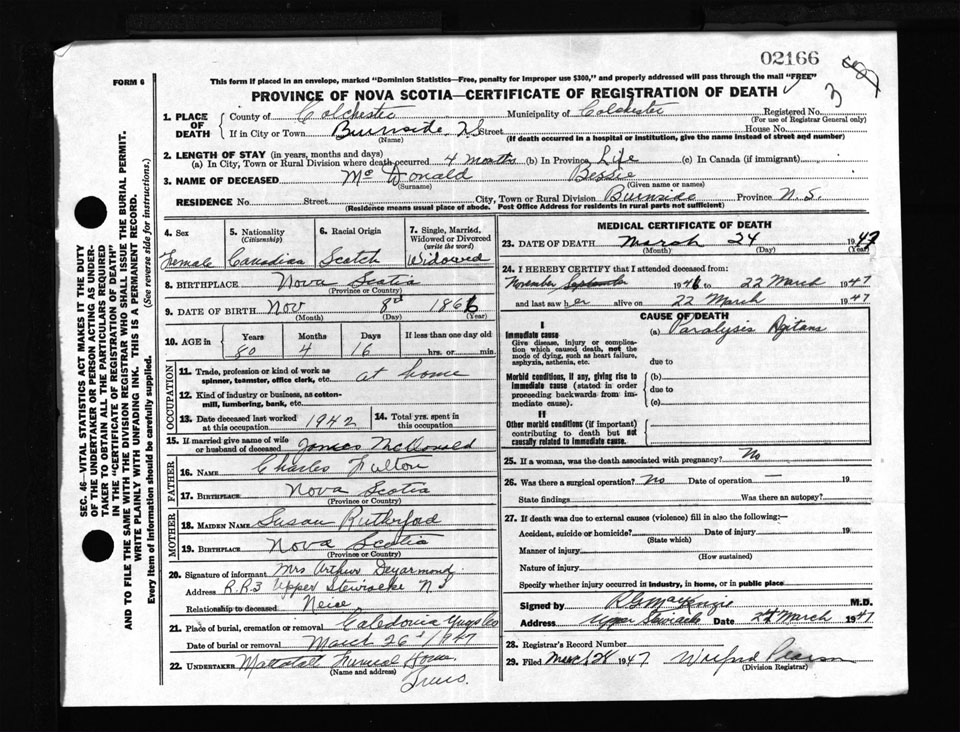 02166
FORM 6
This form if placed in an envelope, marked "Dominion Statistics—Free, penalty for improper use $300," and properly addressed will pass through the mail "FREE"
3
PROVINCE OF NOVA SCOTIA—CERTIFICATE OF REGISTRATION OF DEATH
1. PLACE OF DEATH
County of Colchester Municipality of Colchester Registered No.
(For use of Registrar General only)
If in City or Town Burnside N.S. Street House No.
(Name) (If death occurred in a hospital or institution, give the name instead of street and number)
2. LENGTH OF STAY (in years, months and days)
(a) In City, Town or Rural Division where death occurred 4 months (b) In Province Life (c) In Canada (if immigrant)
3. NAME OF DECEASED McDonald Bessie
(Surname) (Given name or names)
RESIDENCE No. Street City, Town or Rural Division Burnside Province N.S.
(Residence means usual place of abode. Post Office Address for residents in rural parts not sufficient)
4. Sex
Female
5. Nationality
(Citizenship)
Canadian
6. Racial Origin
Scotch
7. Single, Married, Widowed or Divorced
(write the word)
Widowed
8. BIRTHPLACE Nova Scotia
(Province or Country)
9. DATE OF BIRTH Nov 8th 1866
(Month) (Day) (Year)
10. AGE in Years Months Days If less than one day old
80 4 16 hrs. or min.
OCCUPATION
11. Trade, profession or kind of work as
spinner, teamster, office clerk, etc. at home
12. Kind of industry or business, as cotton-
mill, lumbering, bank, etc.
13. Date deceased last worked
at this occupation 1942
14. Total yrs. spent in
this occupation
15. If married give name of wife
or husband of deceased James McDonald
FATHER
16. NAME Charles Fulton
17. BIRTHPLACE Nova Scotia
(Province or Country)
MOTHER
18. MAIDEN NAME Susan Rutherford
19. BIRTHPLACE Nova Scotia
(Province or Country)
20. Signature of informant Mrs Arthur Deyarmond
Address R.R.3 Upper Stewiacke N.S
Relationship to deceased Neice
21. Place of burial, cremation or removal Caledonia Guys Co
Date of burial or removal March 26 1947
22. UNDERTAKER Mattatall Funeral Home
(Name and address)
Truro.
MEDICAL CERTIFICATE OF DEATH
23. DATE OF DEATH March 24 1947
(Month) (Day) (Year)
24. I HEREBY CERTIFY that I attended deceased from:
November September 1946 to 22 March 1947
and last saw her alive on 22 March 1947
CAUSE OF DEATH
I
Immediate cause
Give disease, injury or complica-
tion which caused death, not the
mode of dying, such as heart failure,
asphyxia, asthenia, etc.
(a) Paralysis Agitans
due to
Morbid conditions, if any, giving rise to
immediate cause (stated in order
proceeding backwards from im-
mediate cause).
(b)
due to
(c)
II
Other morbid conditions (if important)
contributing to death but not
causally related to immediate cause.
25. If a woman, was the death associated with pregnancy? No
26. Was there a surgical operation? No Date of operation 19
State findings Was there an autopsy?
27. If death was due to external causes (violence) fill in also the following:—
Accident, suicide or homicide? Date of injury 19
(State which)
Manner of injury
(How sustained)
Nature of injury
Specify whether injury occurred in industry, in home, or in public place
Signed by R G MacKenzie M.D.
Address Upper Stewiacke Date 24 March 1947
28. Registrar's Record Number
29. Filed March 24 1947 Wilfred Pearson
(Division Registrar)
SEC. 46—VITAL STATISTICS ACT MAKES IT THE DUTY
OF THE UNDERTAKER OR PERSON ACTING AS UNDER-
TAKER TO OBTAIN ALL THE PARTICULARS REQUIRED
IN THE "CERTIFICATE OF REGISTRATION OF DEATH"
AND TO FILE THE SAME WITH THE DIVISION REGISTRAR WHO SHALL ISSUE THE BURIAL PERMIT.
WRITE PLAINLY WITH UNFADING INK. THIS IS A PERMANENT RECORD.
Every item of information should be carefully supplied. (See reverse side for instructions.)